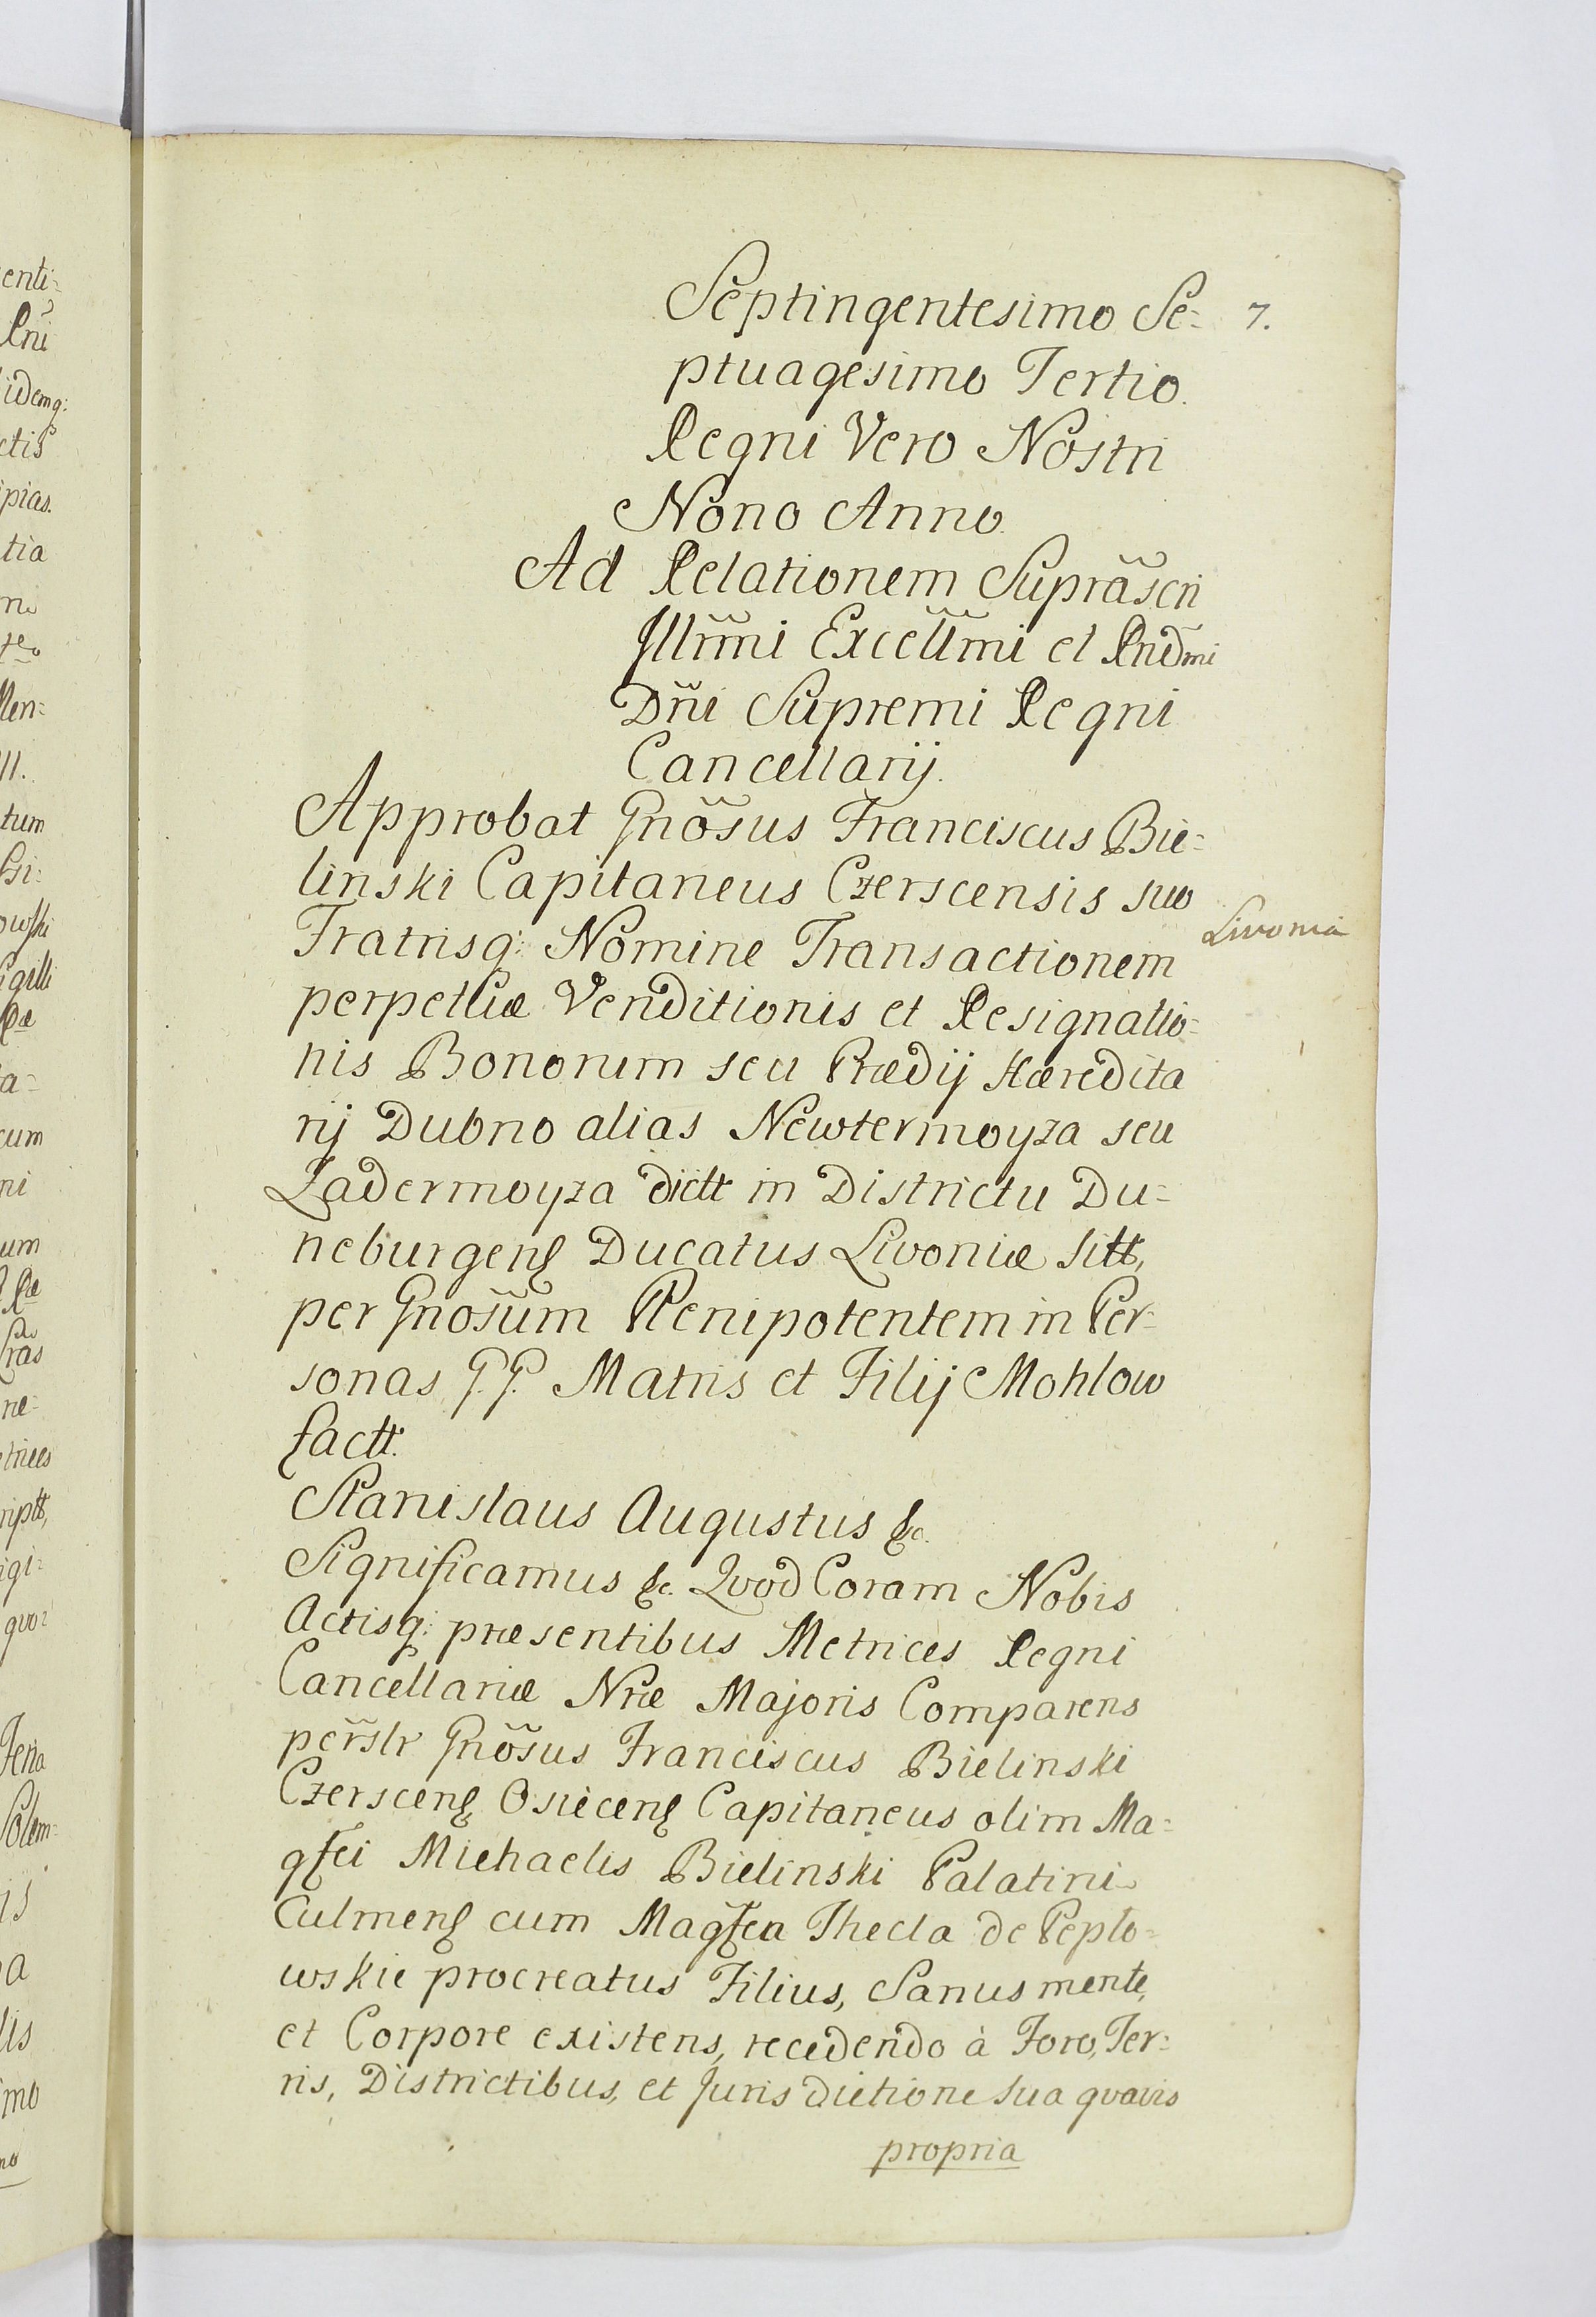 Septingentesimo Se= 7.
ptuagesimo Tertio.
Regni Vero Nostri
Nono Anno.
Ad Relationem Suprãscri
Jllrm̃i Excell̃mi et Rnd̃mi
Dñi Supremi Regni
Cancellarij.
Approbat Gnõsus Franciscus Bie=
linski Capitaneus Czerscensis suo
Fratrisq: Nomine Transactionem
Livonia
perpetuæ Venditionis et Resignatio=
nis Bonorum seu Prædij Hæredita
rij Dubno alias Newtermoyza seu
Zadermoyza dictt in Districtu Du=
neburgens Ducatus Livoniæ sitt,
per Gnosũm Plenipotentem in Per=
sonas G.G. Matris et Filij Mohlow
factt.
Stanislaus Augustus &c.
Significamus &c. Qvod Coram Nobis
Actisq: præsentibus Metrices Regni
Cancellariæ Nræ Majoris Comparens
per̃slr Gnõsus Franciscus Bielinski
Czerscens Osiecens Capitaneus olim Ma=
gfci Michaelis Bielinski Palatini
Culmens cum Magfca Thecla de Peplo=
wskie procreatus Filius, Sanus mente,
et Corpore existens, recedendo à Foro, Ter=
ris, Districtibus, et Jurisdictione sua qvavis
propria
enti=
Rñi
idemq:
ctis
pias.
tia
Men=
II.
tum
si=
owski
gilli
Ræ
a=
cum
ni
um
Ræ
ras
ne=
trices
riptt,
igi=
quo
Feria
Solem=
is
a
lis
imo
mo